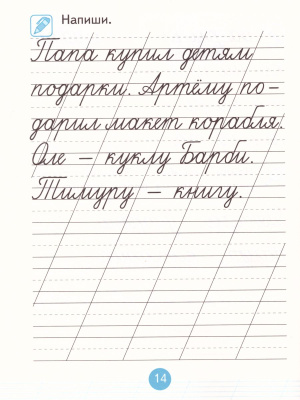 Напиши.
Папа купил детям
подарки. Артёму по-
дарил макет корабля.
Оле - куклу Барби.
Тимуру - книгу.
14